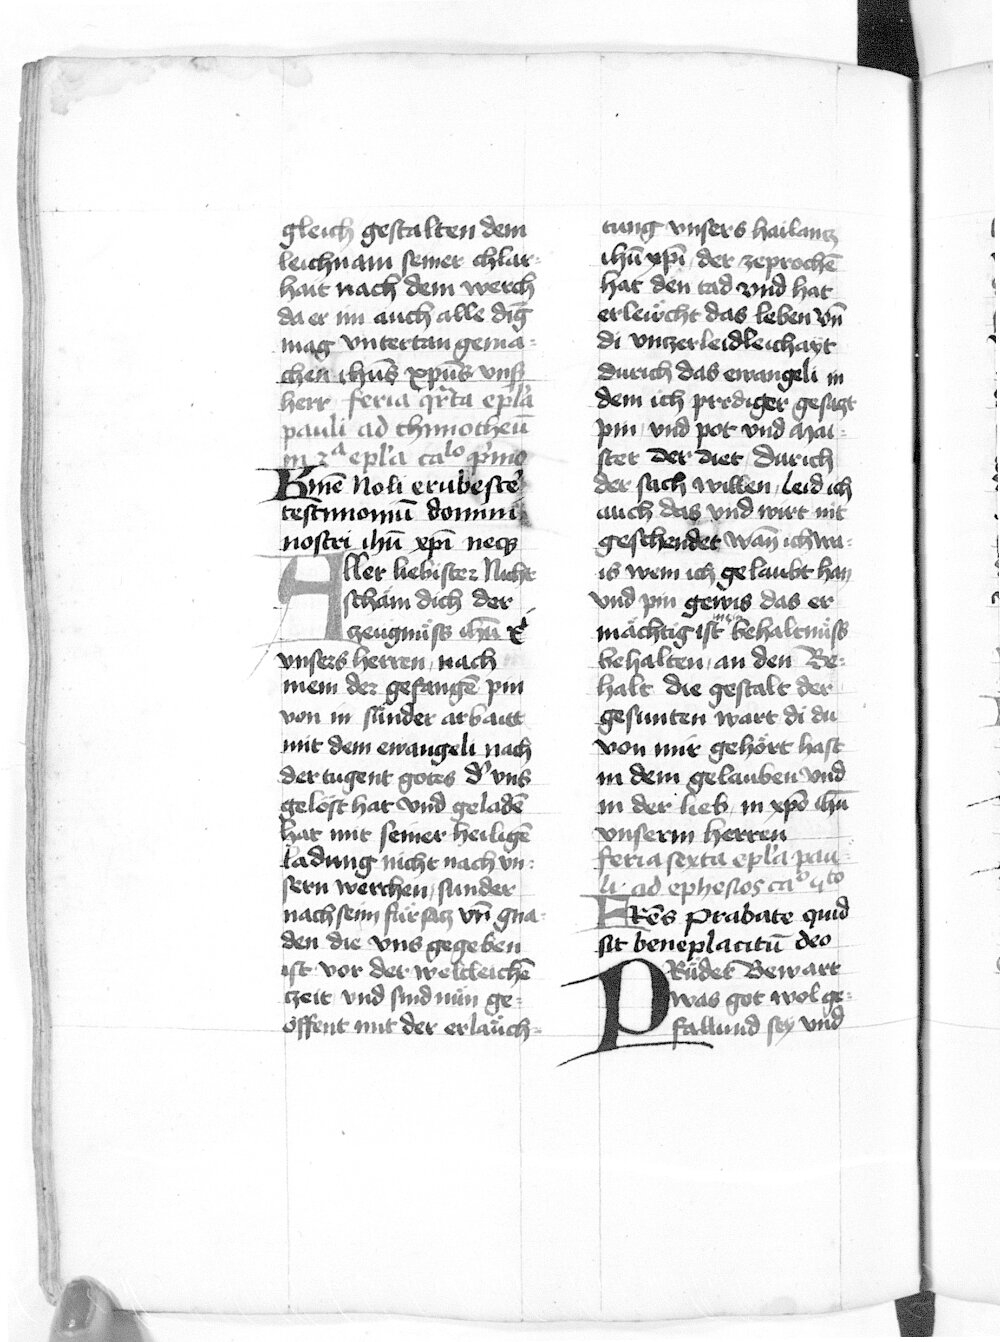 gleich gestalten dem
leichnam seiner chlar-
hait nach dem werch
da er im auch alle ding
mag untertan gema-
chen ihūs xp̄us
herr feria q̄rta ep̄la
pauli ad thimotheū
in 2ᵃ ep̄la caᵒ p̄mo
Kmē Noli erubesce
testimoniū domini
nostri ihū xp̄i neq
Aller liebister Nicht
schäm dich der
czeugnüss ihū x̄
unsers herren nach
mein der gefangē pin
von in sunder arbaitt
mit dem ewangeli nach
der tugent gotes d' uns
gelöst hat und geladē
hat mit seiner heiligē
ladung nicht nach un-
sern werchen sunder
nach seim fürsacz vn̄ gna-
den die uns gegeben
ist vor der weltleichē
czeit und sind nün ge-
öffent mit der erläuch-
tung unsers hailancz
ihū xp̄i der zeprochē
hat den tad und hat
erleücht das leben vn̄
di unczerleidleichayt
durich das ewangeli in
dem ich prediger gesaczt
pin und pot und mai-
ster der diet durich
der sach willen leid ich
auch das und wirt nit
geschendet wan̄ ich wa-
is wem ich gelaubt han
und pin gewis das er
mächtig ist mein behaltnüss
behalten an den Be-
halt die gestalt der
gesunten wart di du
von mir gehört hast
in dem gelauben und
in der lieb in xp̄o ihū
unserm herren
feria sexta ep̄la pau-
li ad ephesios caᵒ qᵗᵒ
FRēs Probate quid
sit beneplacitū deo
PRüder Bewart
was got wol ge-
fallund sey und